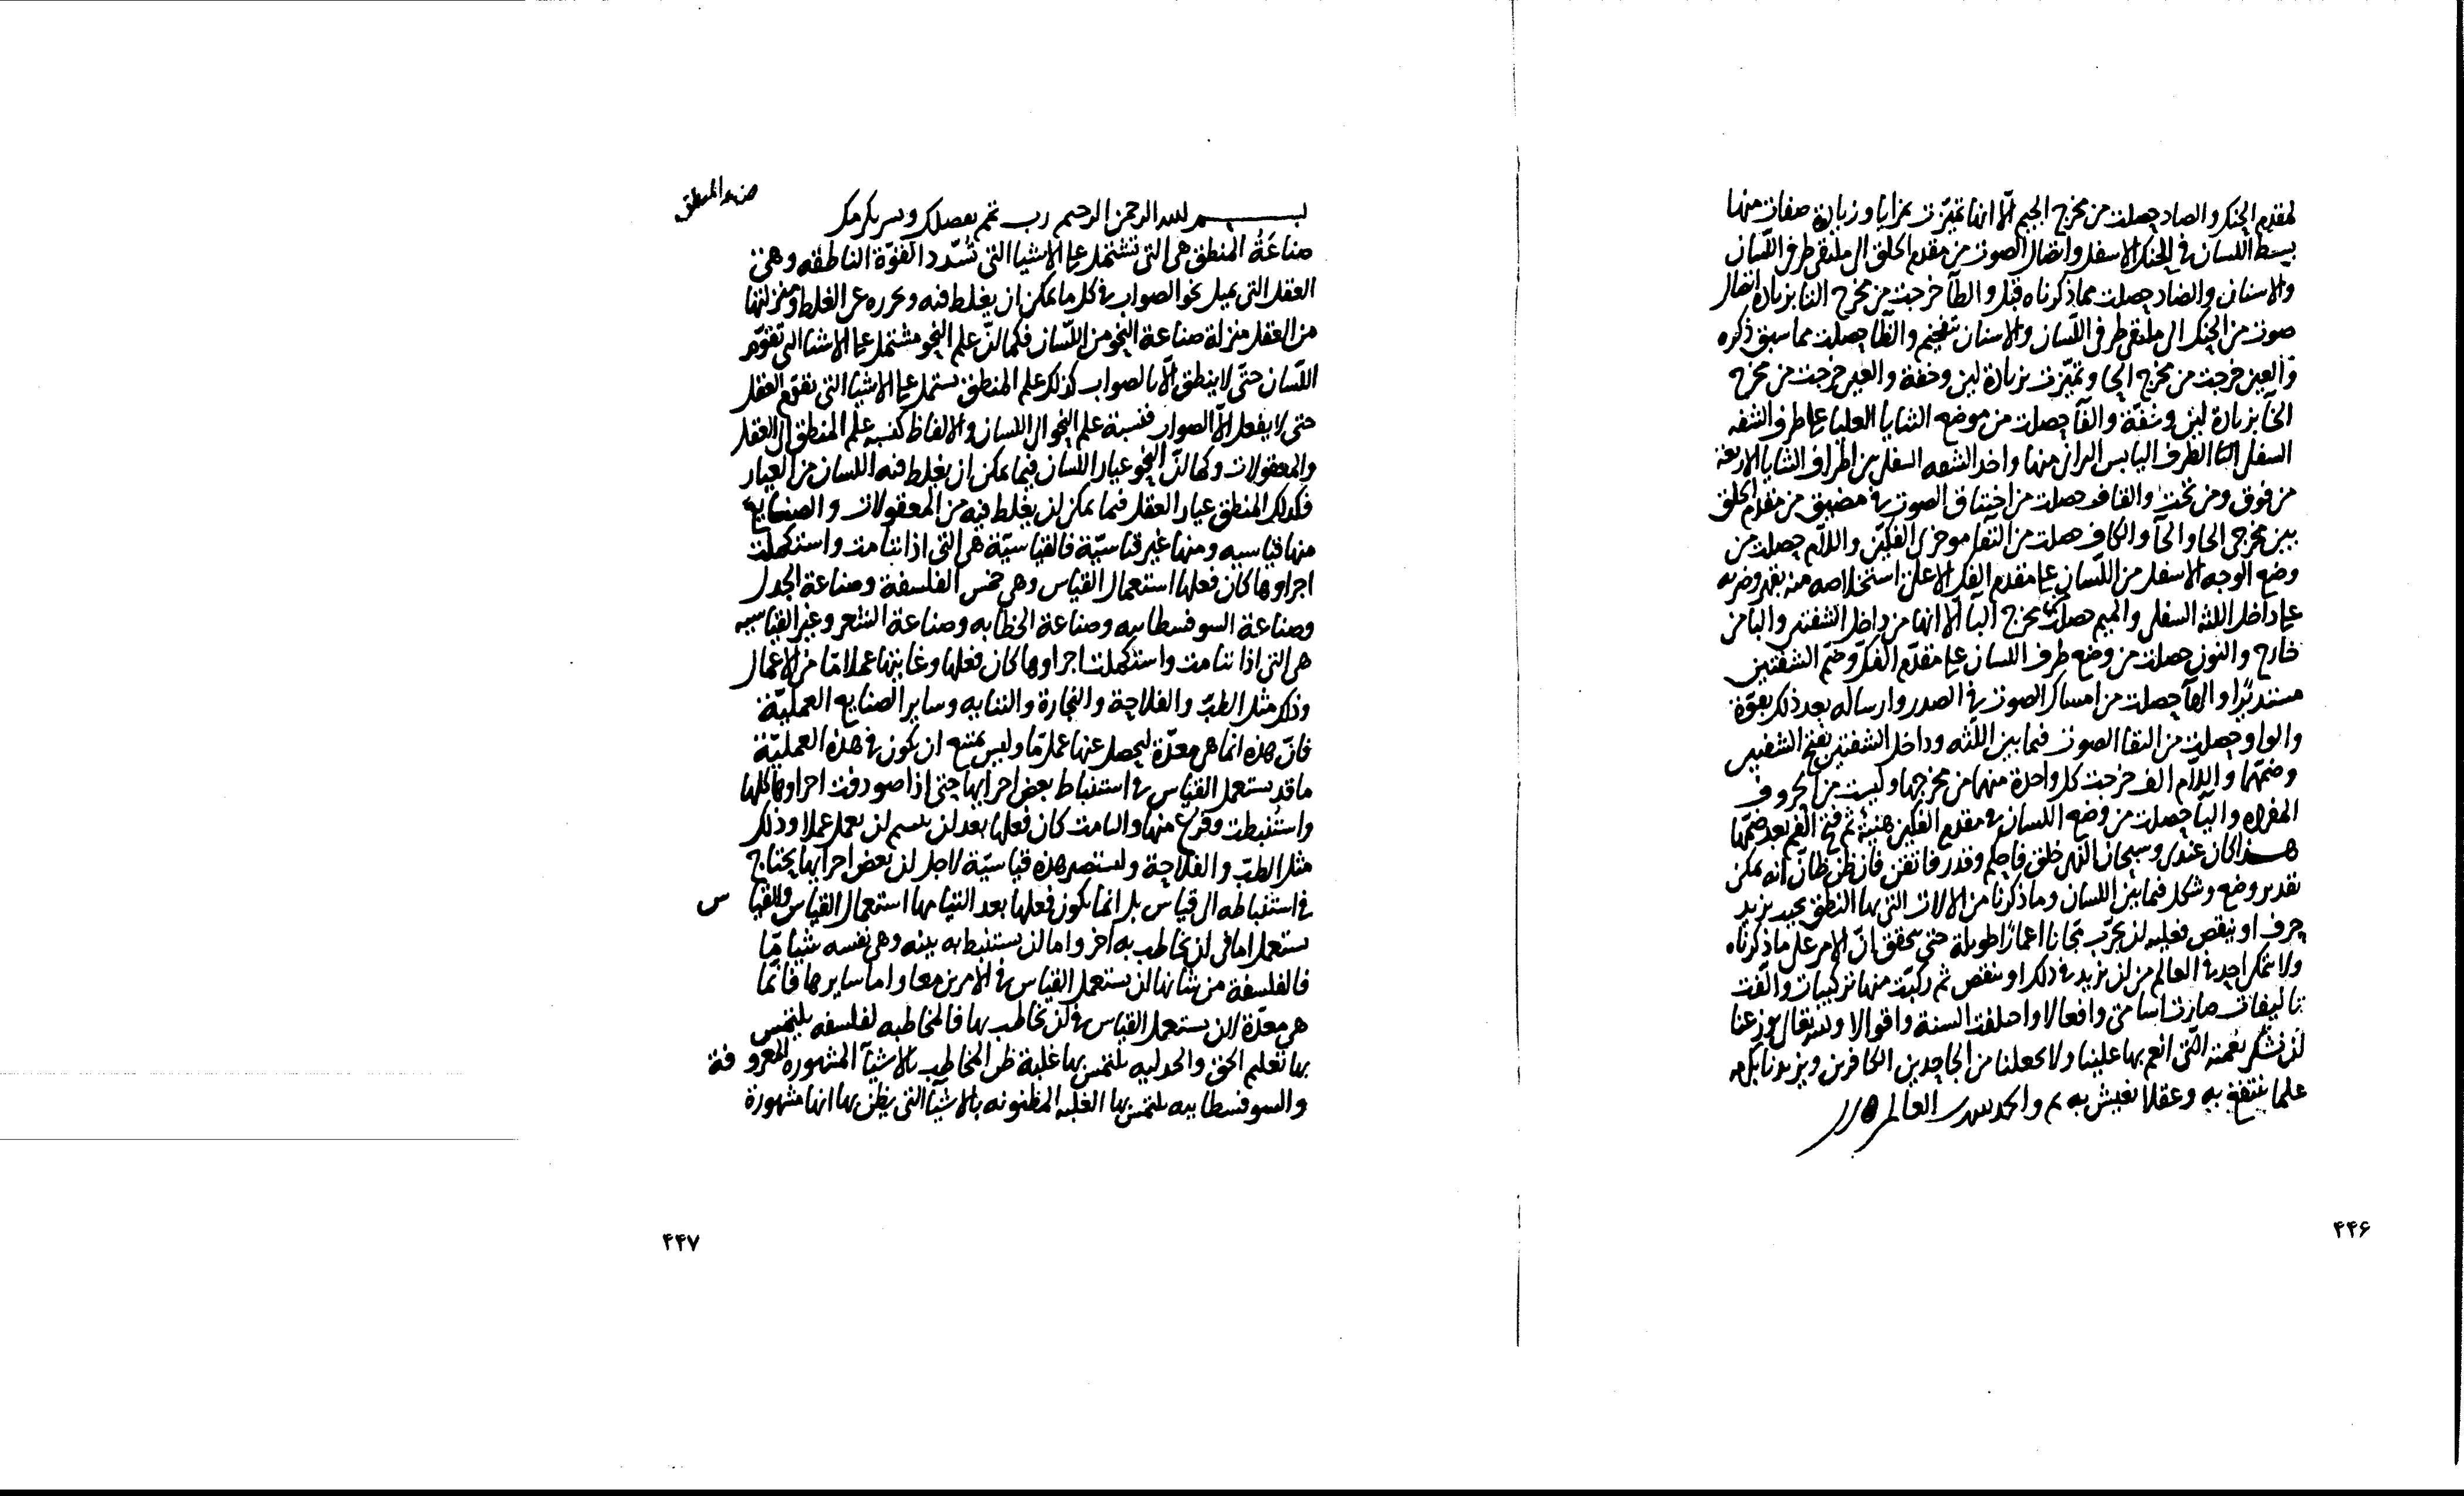 لمقدم الحنك والصاد حصلت من مخرج الجيم الّا انها تميّزت بمزايا وزيادة صفات منها
بسط اللسان في الحنك الاسفل واتصال الصوت من مقدم الحلق الى ملتقى طرف اللسان
والاسنان والضاد حصلت مما ذكرناه قبل والطآ خرجت من مخرج التا بزيادة اتصال
صوت من الحنك الى ملتقى طرفي اللسان والاسنان بتفخيم والظا حصلت مما سبق ذكره
والعين خرجت من مخرج الحا وتميّزت بزيادة لين وخفة والغين خرجت من مخرج
الخا بزيادة لين وشفّة والفا حصلت من موضع الثنايا العليا على طرف الشفه
السفلى الطرف اليابس منها واخذ الشفه السفلى من اطراف الثنايا الاربعة
من فوق ومن تحت والقاف حصلت من اختناق الصوت في مضيق من مقدم الحلق
بين مخرجي الحا والخا والكاف حصلت من التقا موخرى الفكين واللام حصلت من
وضع الوجه الاسفل من اللسان على مقدم الفك الاعلى استخلاصه منه
على داخل اللثه السفلى والميم حصلت من مخرج البا الّا انها من داخل الشفتين والبا من
خارج والنون حصلت من وضع طرف اللسان على مقدّم الفك وضم الشفتين
مستديرًا والهآ حصلت من امساك الصوت في الصدر وارساله بعد ذلك بقوّة
والواو حصلت من التقا الصوت فيما بين اللثه وداخل الشفتين بفتح الشفتين
وضمّهما واللام الف خرجت كل واحدة منهما من مخرجها وليست من الحروف
المفرده واليآ حصلت من وضع اللسان في مقدم الفكين هنيئة ثم فتح الفم بعد ضمّها
هذا كان عندى وسبحان الذى خلق فاحكم وقدر فاتقن فان ظن ظانّ انه يمكن
تقدير وضع وشكل فيما بين اللسان وما ذكرنا من الالات التى بها النطق بحيث يزيد
حرف او ينقص فعليه ان يجرّب اعمارًا طويلة حتى يتحقق انّ الامر على ما ذكرناه
ولا يتمكن احد في العالم من ان يزيد في ذلك او ينقص ثم ركبّت منها تركيبات والّفت
تاليفات صارت اسامى وافعالا واختلفت السنة واقوالا
ان نشكر نعمته التى انعم بها علينا ولا يجعلنا من الجاحدين الكافرين ويزيدنا بكرمه
علما ننتفع به وعقلا نعيش به والحمد لله رب العالمين
۴۴۶
صناعه المنطق
بسم الله الرحمن الرحيم رب تمم بفضلك ويسر بكرمك
صناعَةُ المنطق هى التى تشتمل على الاشيا التى تُسدّد القوّة الناطقه وهى
العقل التى يميل نحو الصواب في كل ما يمكن ان يغلط فيه وتحرره عن الغلط ومنزلتها
من العقل منزلة صناعة النحو من اللّسان فكما انّ علم النحو مشتمل على الاشيا التى تقوّم
اللّسان حتّى لا ينطق الّا بالصواب كذلك علم المنطق يشتمل على الاشيا التى تقوّم العقل
حتى لا يفعل الّا الصواب فنسبة علم النحو الى اللسان والالفاظ كنسبة علم المنطق الى العقل
والمعقولات وكما انّ النحو عيار اللسان فيما يمكن ان يغلط فيه اللسان من العبار
فكذلك المنطق عيار العقل فيما يمكن ان يغلط فيه من المعقولات والصنايع
منها قياسيه ومنها غير قياسيّة فالقياسيّة هى التى اذا تنامت واستكملت
اجزاوها كان فعلها استعمال القياس وهى خمس الفلسفة وصناعة الجدل
وصناعة السوفسطاييه وصناعة الخطابه وصناعة الشعر وغير القياسيه
هى التى اذا تنامت واستكملت اجزاوها كان فعلها وغايتها عملا مّا من الاعمال
وذلك مثل الطبّ والفلاحة والنجارة والبنايه وساير الصنايع العمليّة
فانّ هذه انما هى معدّة ليحصل عنها عمل مّا وليس يمتنع ان يكون في هذه العمليّة
ما قد يستعمل القياس في استنباط بعض اجزايها حتى اذا صودفت اجزاوها كلها
واستُنبطت وفرغ منها والتامت كان فعلها بعد ان تعمل عملا وذلك
مثل الطبّ والفلاحة وليست تصير هذه قياسيّة لاجل ان بعض اجزايها يحتاج
في استنباطه الى قياس بل انما يكون فعلها بعد التيامها استعمال القياس والقياس
يستعمل اما في ان يخاطب به آخر واما ان يستنبط به بينه وبين نفسه شيا مّا
فالفلسفة من شانها ان يستعمل القياس في الامرين معا واما سايرها فانّما
هى معدّة ان يستعمل القياس في ان يخاطب بها فالمخاطبه الفلسفه يلتمس
بها تعليم الحق والجدليه يلتمس بها غلبة ظن المخاطب بالاشيآ المشهوره المعروفة
والسوفسطاييه يلتمس بها الغلبه المظنونه بالاشيآ التى يظن بها انها مشهورة
۴۴۷